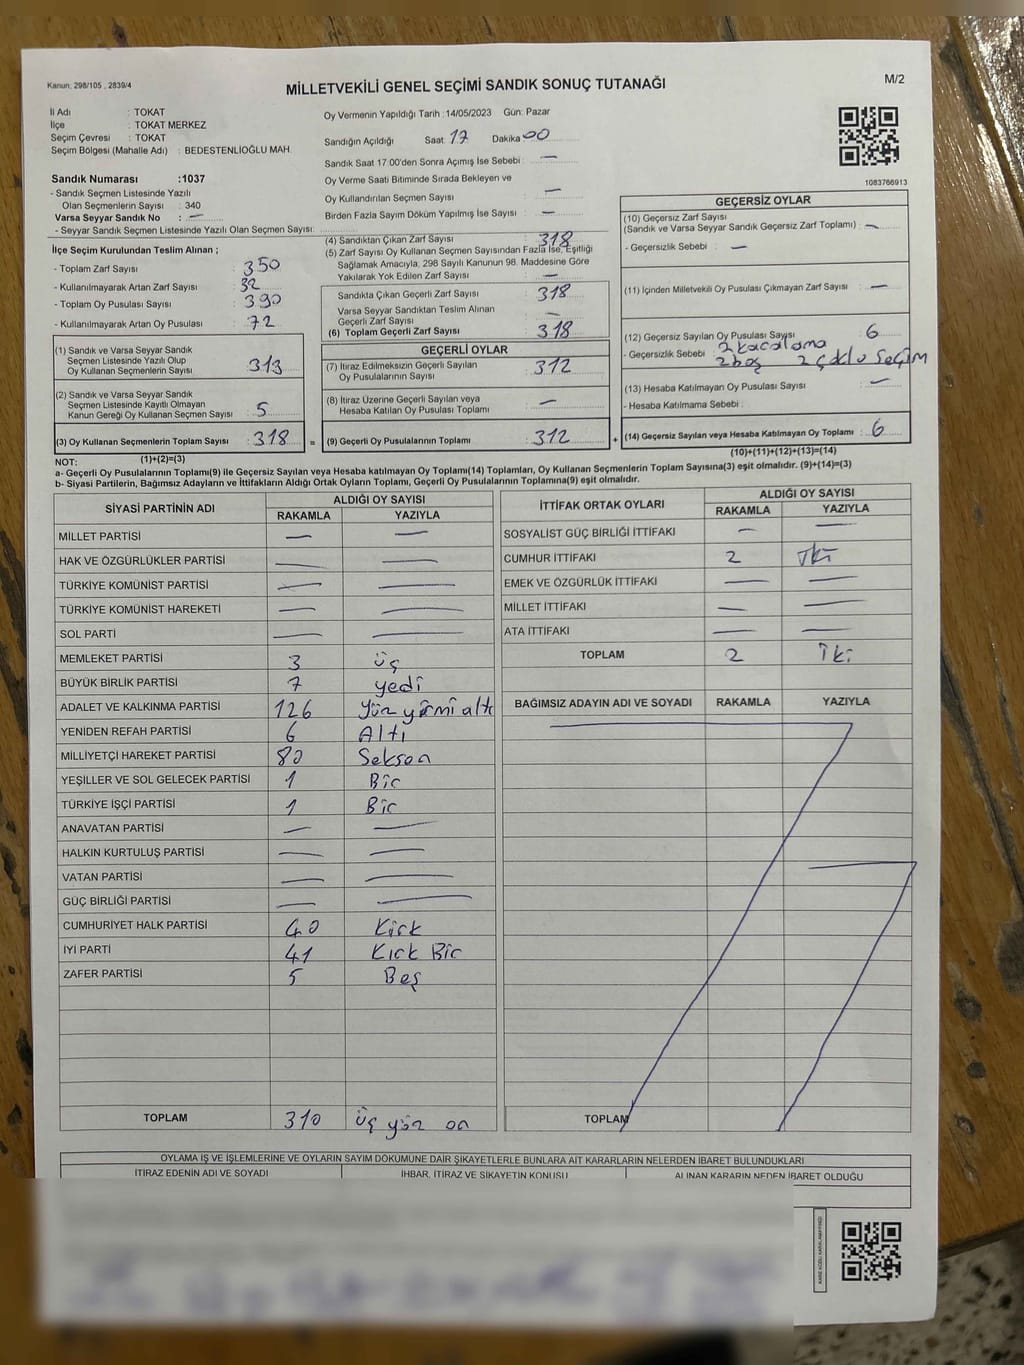 Kanun, 298/105 , 2839/4
MİLLETVEKİLİ GENEL SEÇİMİ SANDIK SONUÇ TUTANAĞI
M/2
İl Adı : TOKAT
İlçe : TOKAT MERKEZ
Seçim Çevresi : TOKAT
Seçim Bölgesi (Mahalle Adı) : BEDESTENLİOĞLU MAH.
Sandık Numarası :1037
- Sandık Seçmen Listesinde Yazılı
Olan Seçmenlerin Sayısı : 340
Varsa Seyyar Sandık No : —
- Seyyar Sandık Seçmen Listesinde Yazılı Olan Seçmen Sayısı:
İlçe Seçim Kurulundan Teslim Alınan ;
- Toplam Zarf Sayısı : 350
- Kullanılmayarak Artan Zarf Sayısı : 32
- Toplam Oy Pusulası Sayısı : 390
- Kullanılmayarak Artan Oy Pusulası : 72
(1) Sandık ve Varsa Seyyar Sandık
Seçmen Listesinde Yazılı Olup
Oy Kullanan Seçmenlerin Sayısı : 313
(2) Sandık ve Varsa Seyyar Sandık
Seçmen Listesinde Kayıtlı Olmayan
Kanun Gereği Oy Kullanan Seçmen Sayısı : 5
(3) Oy Kullanan Seçmenlerin Toplam Sayısı : 318
(1)+(2)=(3)
Oy Vermenin Yapıldığı Tarih : 14/05/2023 Gün: Pazar
Sandığın Açıldığı Saat: 17 Dakika: 00
Sandık Saat 17:00'den Sonra Açımış İse Sebebi : —
Oy Verme Saati Bitiminde Sırada Bekleyen ve
Oy Kullandırılan Seçmen Sayısı : —
Birden Fazla Sayım Döküm Yapılmış İse Sayısı : —
(4) Sandıktan Çıkan Zarf Sayısı : 318
(5) Zarf Sayısı Oy Kullanan Seçmen Sayısından Fazla İse, Eşitliği
Sağlamak Amacıyla, 298 Sayılı Kanunun 98. Maddesine Göre
Yakılarak Yok Edilen Zarf Sayısı : —
Sandıkta Çıkan Geçerli Zarf Sayısı : 318
Varsa Seyyar Sandıktan Teslim Alınan
Geçerli Zarf Sayısı : —
(6) Toplam Geçerli Zarf Sayısı : 318
GEÇERLİ OYLAR
(7) İtiraz Edilmeksizin Geçerli Sayılan
Oy Pusulalarının Sayısı : 312
(8) İtiraz Üzerine Geçerli Sayılan veya
Hesaba Katılan Oy Pusulaları Toplamı : —
= (9) Geçerli Oy Pusulalarının Toplamı : 312
1083766913
GEÇERSİZ OYLAR
(10) Geçersiz Zarf Sayısı
(Sandık ve Varsa Seyyar Sandık Geçersiz Zarf Toplamı) : —
- Geçersizlik Sebebi : —
(11) İçinden Milletvekili Oy Pusulası Çıkmayan Zarf Sayısı : —
(12) Geçersiz Sayılan Oy Pusulası Sayısı : 6
- Geçersizlik Sebebi : 2 karalama
2 boş 2 çoklu seçim
(13) Hesaba Katılmayan Oy Pusulası Sayısı : —
- Hesaba Katılmama Sebebi :
+ (14) Geçersiz Sayılan veya Hesaba Katılmayan Oy Toplamı : 6
(10)+(11)+(12)+(13)=(14)
NOT:
a- Geçerli Oy Pusulalarının Toplamı(9) ile Geçersiz Sayılan veya Hesaba katılmayan Oy Toplamı(14) Toplamları, Oy Kullanan Seçmenlerin Toplam Sayısına(3) eşit olmalıdır. (9)+(14)=(3)
b- Siyasi Partilerin, Bağımsız Adayların ve İttifakların Aldığı Ortak Oyların Toplamı, Geçerli Oy Pusulalarının Toplamına(9) eşit olmalıdır.
SİYASİ PARTİNİN ADI ALDIĞI OY SAYISI
RAKAMLA YAZIYLA
MİLLET PARTİSİ — —
HAK VE ÖZGÜRLÜKLER PARTİSİ — —
TÜRKİYE KOMÜNİST PARTİSİ — —
TÜRKİYE KOMÜNİST HAREKETİ — —
SOL PARTİ — —
MEMLEKET PARTİSİ 3 üç
BÜYÜK BİRLİK PARTİSİ 7 yedi
ADALET VE KALKINMA PARTİSİ 126 Yüz yirmi altı
YENİDEN REFAH PARTİSİ 6 Altı
MİLLİYETÇİ HAREKET PARTİSİ 80 Seksen
YEŞİLLER VE SOL GELECEK PARTİSİ 1 Bir
TÜRKİYE İŞÇİ PARTİSİ 1 Bir
ANAVATAN PARTİSİ — —
HALKIN KURTULUŞ PARTİSİ — —
VATAN PARTİSİ — —
GÜÇ BİRLİĞİ PARTİSİ — —
CUMHURİYET HALK PARTİSİ 40 Kırk
İYİ PARTİ 41 Kırk Bir
ZAFER PARTİSİ 5 Beş
TOPLAM 310 üç yüz on
İTTİFAK ORTAK OYLARI ALDIĞI OY SAYISI
RAKAMLA YAZIYLA
SOSYALİST GÜÇ BİRLİĞİ İTTİFAKI — —
CUMHUR İTTİFAKI 2 İki
EMEK VE ÖZGÜRLÜK İTTİFAKI — —
MİLLET İTTİFAKI — —
ATA İTTİFAKI — —
TOPLAM 2 İki
BAĞIMSIZ ADAYIN ADI VE SOYADI RAKAMLA YAZIYLA
TOPLAM
OYLAMA İŞ VE İŞLEMLERİNE VE OYLARIN SAYIM DÖKÜMÜNE DAİR ŞİKAYETLERLE BUNLARA AİT KARARLARIN NELERDEN İBARET BULUNDUKLARI
İTİRAZ EDENİN ADI VE SOYADI İHBAR, İTİRAZ VE ŞİKAYETİN KONUSU ALINAN KARARIN NEDEN İBARET OLDUĞU